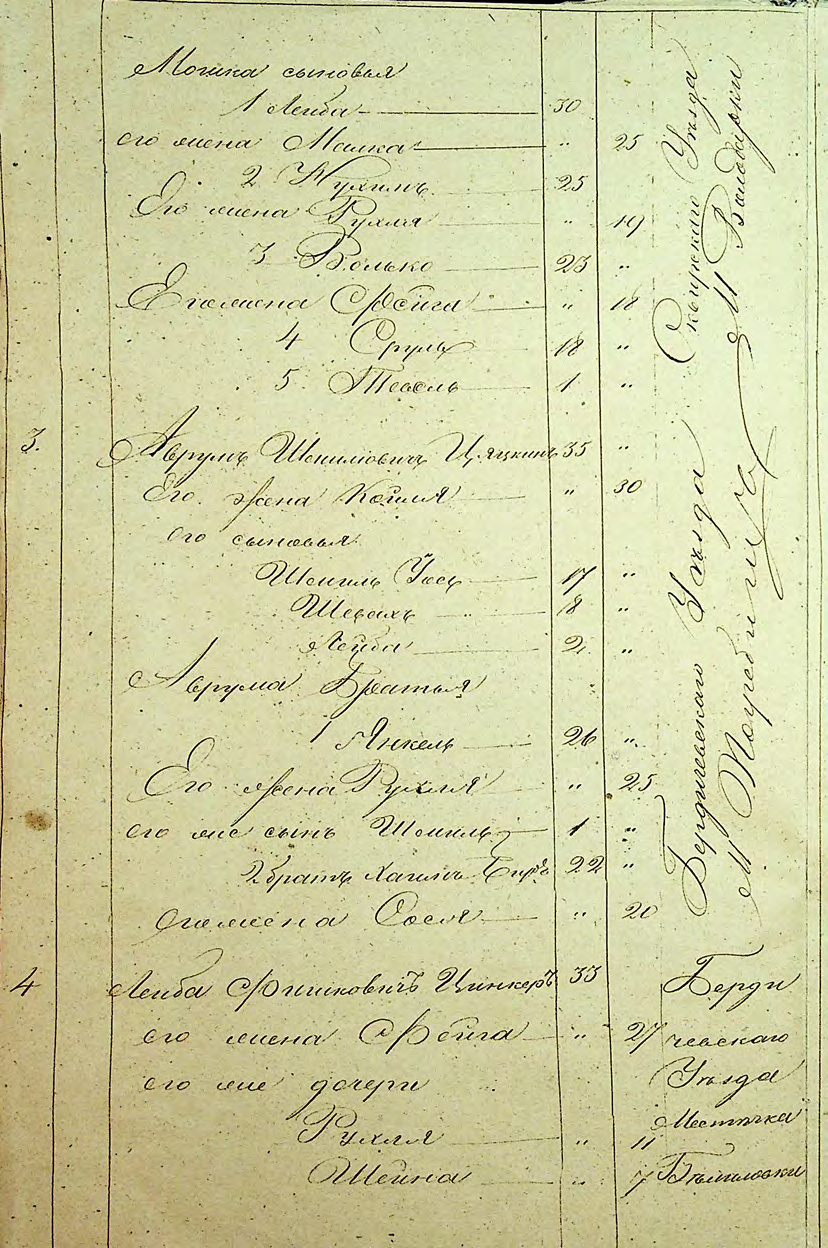 Мошка сыновья
1 Лейба 30
его жена Малка " 25
2 Нухимъ 25
Его жена Рухля " 19
3 Волько 23 "
Его жена Фейга " 18
4 Сруль 18 "
5 1 "
3. Аврумъ Шмилиовичъ 35 "
Его жена Кейля " 30
его сыновья
Шмиль 17 "
Шевахъ 8 "
Лейба 2 "
Аврума Братья
1 Янкель 26 "
Его жена Рухля " 25
его же сынъ Шмиль 1 "
2 братъ Хаимъ 22 "
его жена Сося " 20
4 Лейба Фишковичъ Цинкеръ 33
его жена Фейга " 27
его же дочери
Рухля " 11
Шейна " 7
Сквирского Уезда
М Володарки
Бердичевскаго Уезда
М Погребища
Берди
чевскаго
Уѣзда
Местѣчка
Бѣлиловки